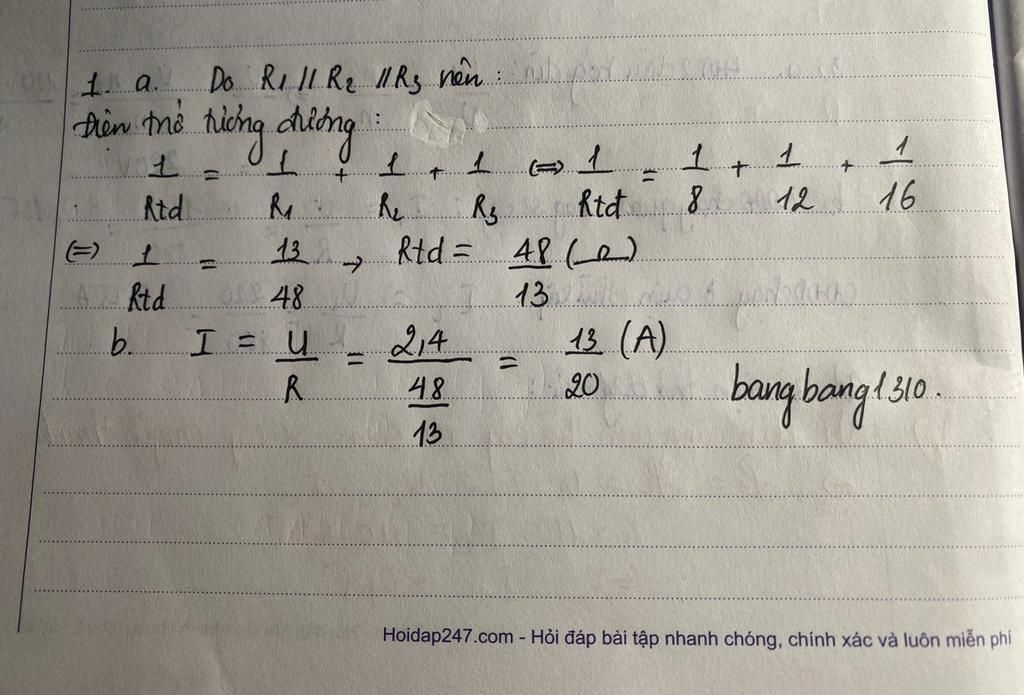 1. a. Do R1 // R2 // R3 nên :
Điện trở tương đương :
1/Rtđ = 1/R1 + 1/R2 + 1/R3 (=) 1/Rtđ = 1/8 + 1/12 + 1/16
(=) 1/Rtđ = 13/48 → Rtđ = 48/13 (Ω)
b. I = U/R = 2,4/(48/13) = 13/20 (A)
bangbang1310.
Hoidap247.com - Hỏi đáp bài tập nhanh chóng, chính xác và luôn miễn phí